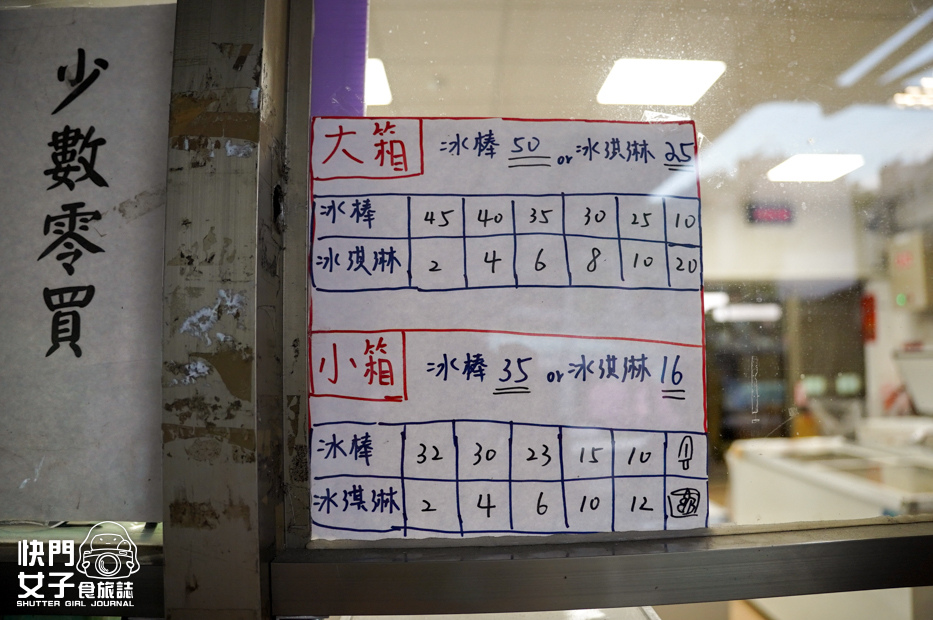 少數零買
大箱 冰棒 50 or 冰淇淋 25
冰棒 45 40 35 30 25 10
冰淇淋 2 4 6 8 10 20
小箱 冰棒 35 or 冰淇淋 16
冰棒 32 30 23 15 10
冰淇淋 2 4 6 10 12
快門
女子食旅誌
SHUTTER GIRL JOURNAL